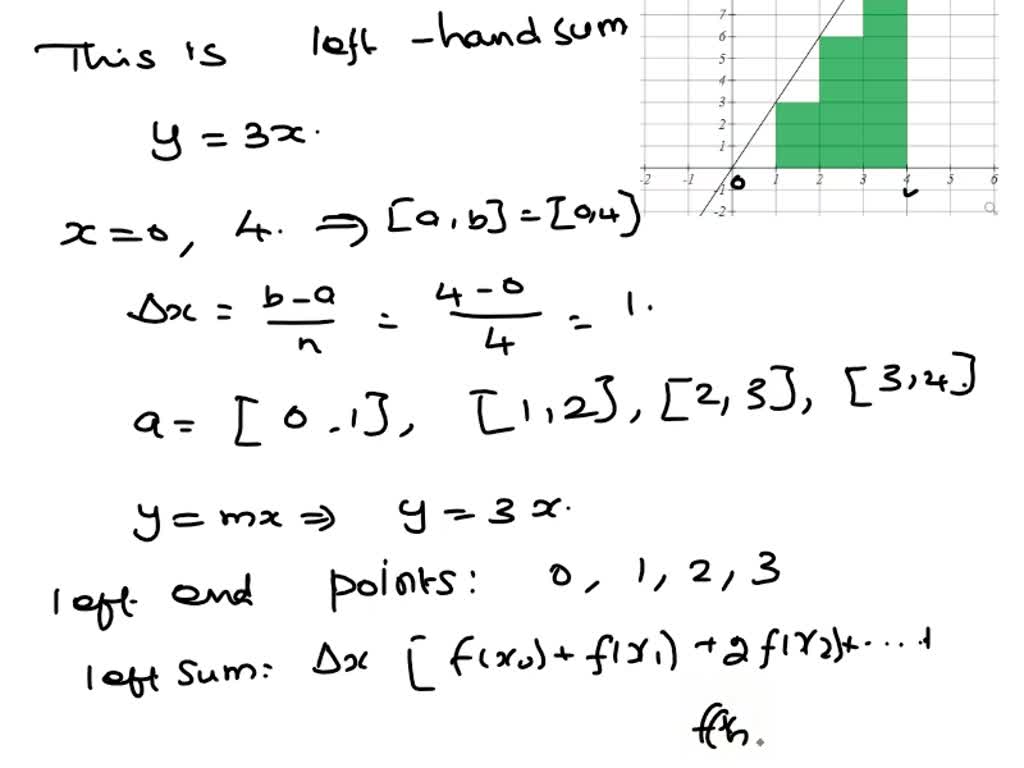 This is left-hand sum
y = 3x.
x=0, 4. ⇒ [a,b]=[0,4]
Δx = b-a/n = 4-0/4 = 1.
a= [0.1], [1,2], [2,3], [3,4]
y=mx ⇒ y=3x.
left end points: 0, 1, 2, 3
left sum: Δx [f(x₀)+f(x₁)+2f(x₂)+....+
f(x
7
6
5
4
3
2
1
-2 -1 0 1 2 3 4 5 6
-1
-2